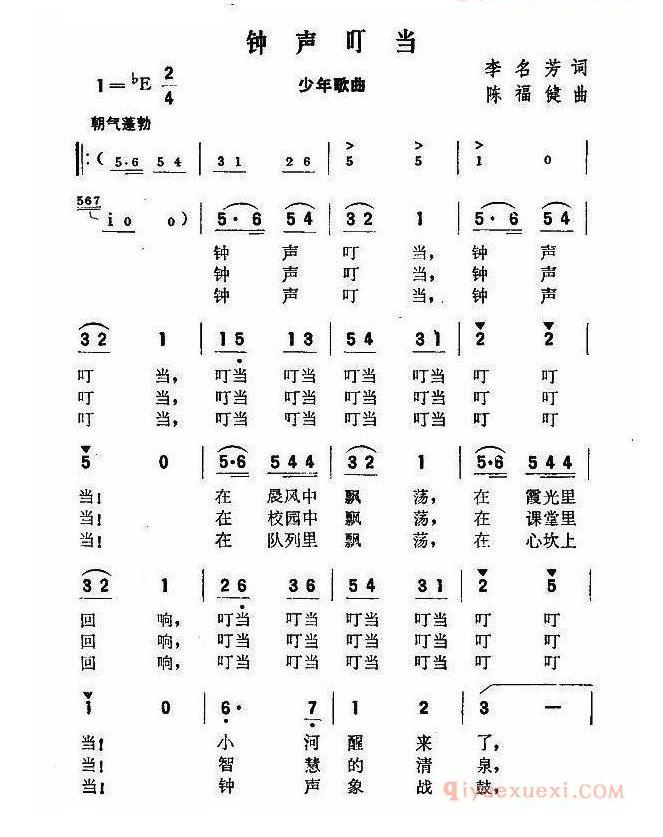 钟声叮当
1=♭E 2/4 少年歌曲 李名芳词
陈福健曲
朝气蓬勃
‖:( 5·6 5 4 | 3 1 2 6 | 5 5 | 1 0 |
567 i 0 0 ) | 5·6 5 4 | 3 2 1 | 5·6 5 4 |
钟声叮当,钟声
钟声叮当,钟声
钟声叮当,钟声
3 2 1 | 1 5 1 3 | 5 4 3 1 | 2 2 |
叮当,叮当叮当叮当叮当叮叮
叮当,叮当叮当叮当叮当叮叮
叮当,叮当叮当叮当叮当叮叮
5 0 | 5·6 5 4 4 | 3 2 1 | 5·6 5 4 4 |
当!在晨风中飘荡,在霞光里
当!在校园中飘荡,在课堂里
当!在队列里飘荡,在心坎上
3 2 1 | 2 6 3 6 | 5 4 3 1 | 2 5 |
回响,叮当叮当叮当叮当叮叮
回响,叮当叮当叮当叮当叮叮
回响,叮当叮当叮当叮当叮叮
1 0 | 6· 7 | 1 2 | 3 — |
当!小河醒来了,
当!智慧的清泉,
当!钟声象战鼓,
qiyuexuexi.com(奇乐学习)